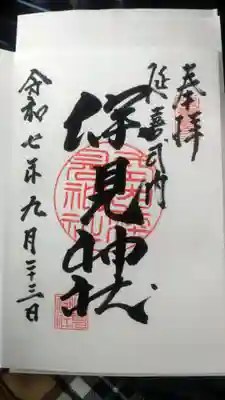 奉拝
延喜式内
保見神社
令和七年九月二十三日